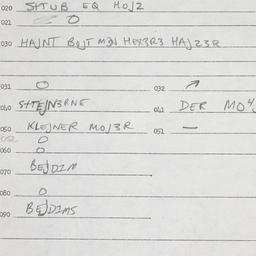 020 SHTUB EQ HOJZ
021 O
030 HAJNT BOJT MEN HEXERS HAJZER
031 O 032 ↗
040 SHTEJNERNE 041 DER MO
050 KLEJNER MOJER 051 —
052 O
060 O
070 BEJDIM
080 O
090 BEJDIMS